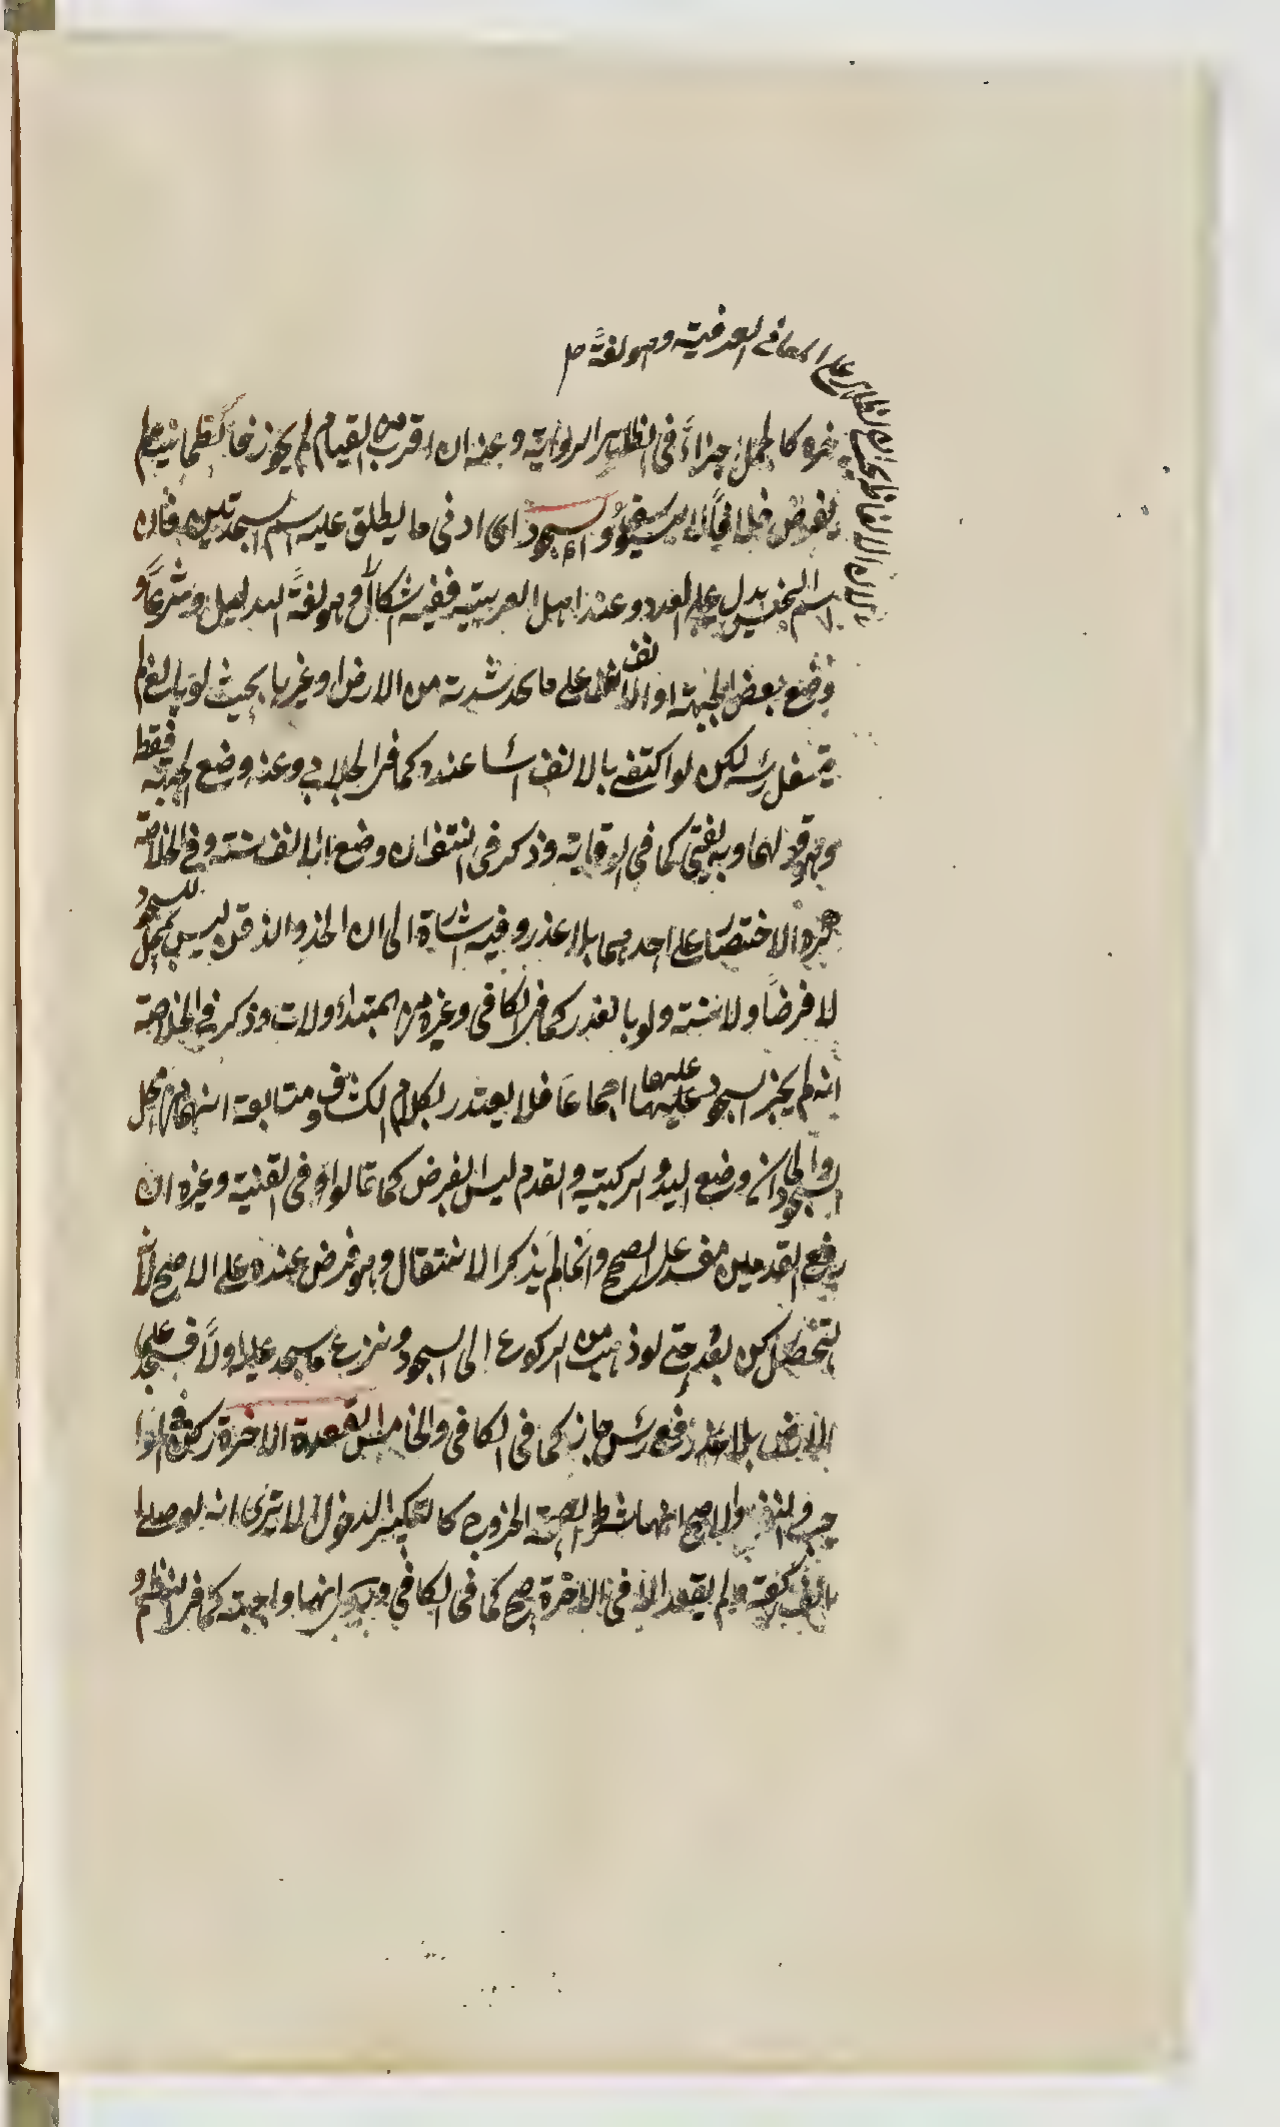 على المعاني العرفية وهو لغة
غيره كالجمل جزاء في الظاهر الرواية وعنه ان اقرب من القيام لم يجوز فالطمانية لم
يفرض خلافا لابي يوسف والسجود اي ادنى ما يطلق عليه اسم السجدتين فان
اسم الجنس يدل على العدد وعند اهل العربية ففيه اشكال وهو لغة الميل وشرعا
وضع بعض الجبهة او الانف على ما يجد شدته من الارض او غيرها بحيث لو بالغ لم
يتسفل رأسه لكن لو اكتفى بالانف اسا عنده كما في الجلابي وعنه وضع الجبهة فقط
وهو قولهما وبه يفتى كما في الوقاية وذكر في النتف ان وضع الانف سنة وفي الخلاصة
كره الاختصار على احدهما بلا عذر وفيه اشارة الى ان الخد والذقن ليس بمحل للسجود
لا فرضا ولا سنة ولو بالعذر كما في الكافي وغيره من المتداولات وذكر في الخلاصة
انه لم يجز السجود عليهما اجماعا فلا يعتذر بكلام الكشاف ومتابعة انهما محل
السجود والى ان وضع اليد والركبتيه والقدم ليس بفرض كما قالوا وفي القنية وغيره ان
رفع القدمين مفسد على الصحيح وانما لم يذكر الانتقال وهو فرض عنده على الاصح لانه
لتحصل ركن بعده حتى لو ذهب من الركوع الى السجود ونزع ما سجد عليه اولا فسجد على
الارض بلا رفع رأس جاز كما في الكافي والخامس القعدة الاخرة ركن وقالوا
والاصح انها شرط لصحة الخروج كالتكبير للدخول الا ترى انه لو صلى
الف ركعة ولم يقعد الا في الاخرة صح كما في الكافي وقيل انها واجبة كما في النظم و